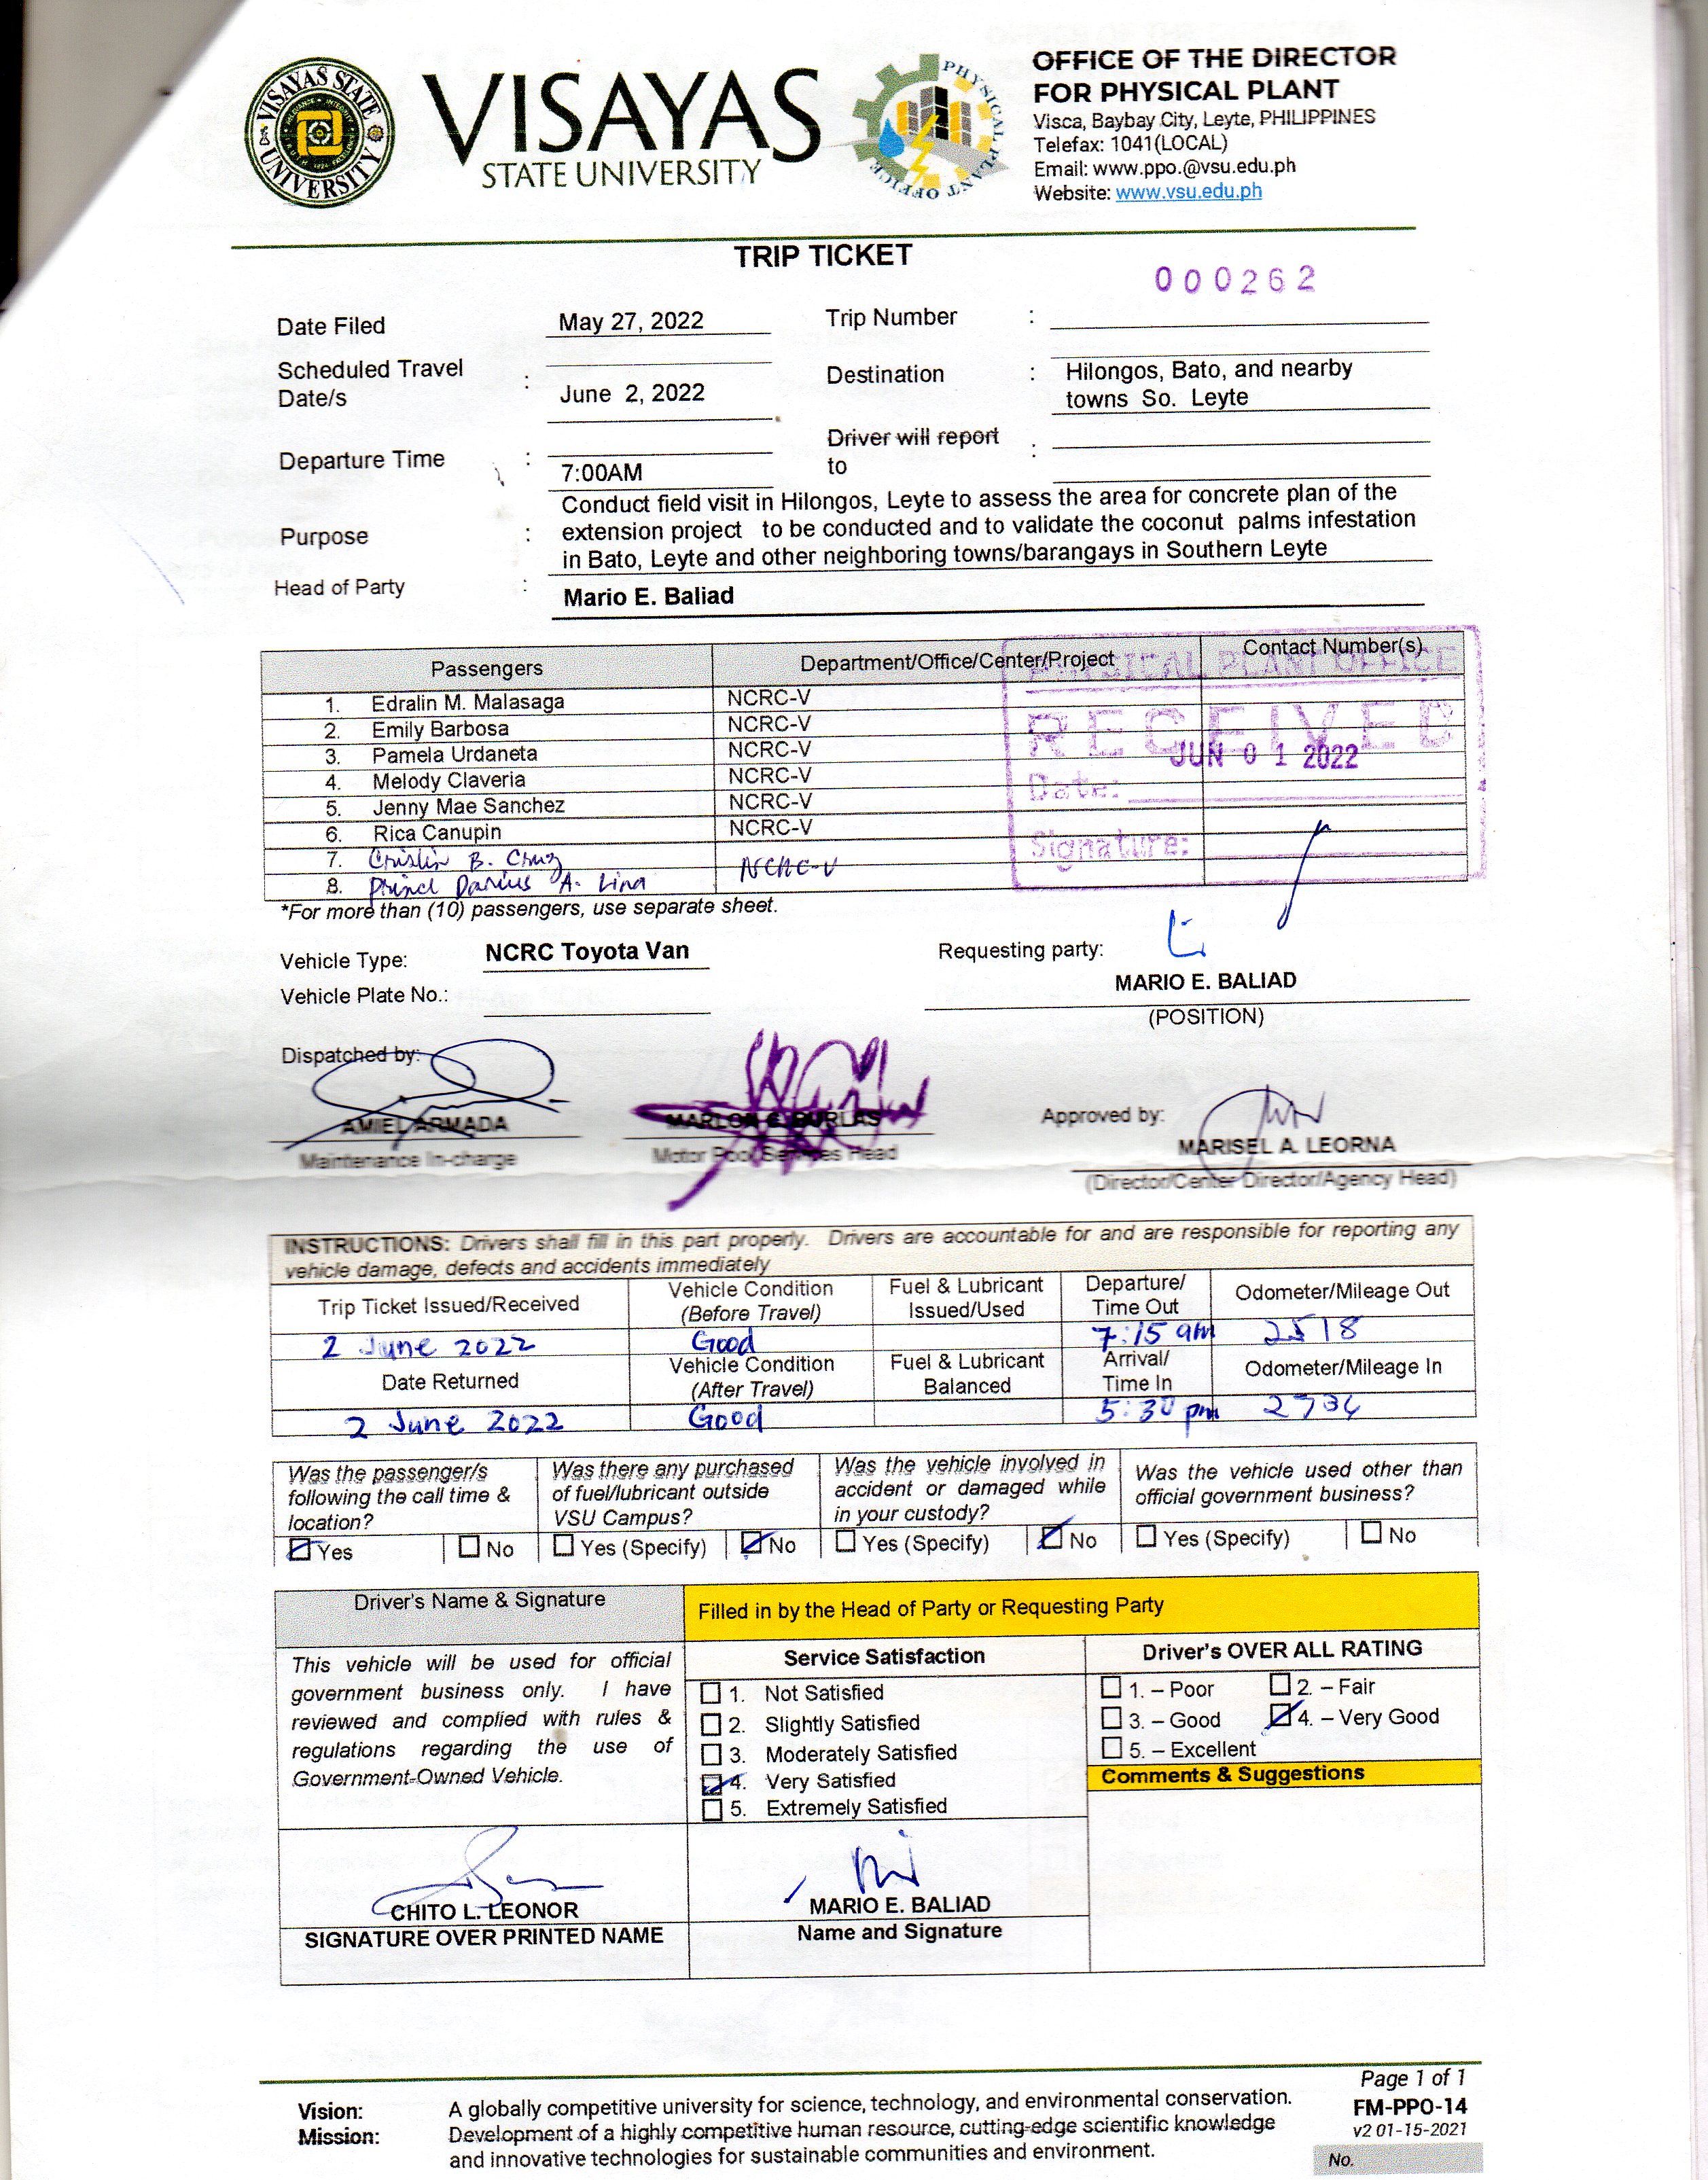 VISAYAS STATE UNIVERSITY
VISAYAS
STATE UNIVERSITY
PHYSICAL PLANT OFFICE
OFFICE OF THE DIRECTOR
FOR PHYSICAL PLANT
Visca, Baybay City, Leyte, PHILIPPINES
Telefax: 1041(LOCAL)
Email: www.ppo.@vsu.edu.ph
Website: www.vsu.edu.ph
TRIP TICKET
000262
Date Filed May 27, 2022 Trip Number :
Scheduled Travel Date/s : June 2, 2022 Destination : Hilongos, Bato, and nearby
towns So. Leyte
Departure Time : 7:00AM Driver will report to :
Purpose : Conduct field visit in Hilongos, Leyte to assess the area for concrete plan of the
extension project to be conducted and to validate the coconut palms infestation
in Bato, Leyte and other neighboring towns/barangays in Southern Leyte
Head of Party : Mario E. Baliad
Passengers Department/Office/Center/Project Contact Number(s)
1. Edralin M. Malasaga NCRC-V
2. Emily Barbosa NCRC-V
3. Pamela Urdaneta NCRC-V
4. Melody Claveria NCRC-V
5. Jenny Mae Sanchez NCRC-V
6. Rica Canupin NCRC-V
7. Cristin B. Cruz
8. Princl Darius A. Lina NCRC-V
PHYSICAL PLANT OFFICE
RECEIVED
JUN 01 2022
Date:
Signature:
*For more than (10) passengers, use separate sheet.
Vehicle Type: NCRC Toyota Van Requesting party:
MARIO E. BALIAD
Vehicle Plate No.: (POSITION)
Dispatched by:
AMIEL ARMADA MARLON G. BURLAS Approved by: MARISEL A. LEORNA
Maintenance In-charge Motor Pool Services Head (Director/Center Director/Agency Head)
INSTRUCTIONS: Drivers shall fill in this part properly. Drivers are accountable for and are responsible for reporting any
vehicle damage, defects and accidents immediately
Trip Ticket Issued/Received Vehicle Condition (Before Travel) Fuel & Lubricant Issued/Used Departure/ Time Out Odometer/Mileage Out
2 June 2022 Good 7:15 am 2518
Date Returned Vehicle Condition (After Travel) Fuel & Lubricant Balanced Arrival/ Time In Odometer/Mileage In
2 June 2022 Good 5:30 pm
Was the passenger/s following the call time & location? Was there any purchased of fuel/lubricant outside VSU Campus? Was the vehicle involved in accident or damaged while in your custody? Was the vehicle used other than official government business?
Yes No Yes (Specify) No Yes (Specify) No Yes (Specify) No
Driver's Name & Signature Filled in by the Head of Party or Requesting Party
This vehicle will be used for official
government business only. I have
reviewed and complied with rules &
regulations regarding the use of
Government-Owned Vehicle.
Service Satisfaction
1. Not Satisfied
2. Slightly Satisfied
3. Moderately Satisfied
4. Very Satisfied
5. Extremely Satisfied
Driver's OVER ALL RATING
1. – Poor 2. – Fair
3. – Good 4. – Very Good
5. – Excellent
Comments & Suggestions
CHITO L. LEONOR MARIO E. BALIAD
SIGNATURE OVER PRINTED NAME Name and Signature
Page 1 of 1
FM-PPO-14
v2 01-15-2021
No.
Vision: A globally competitive university for science, technology, and environmental conservation.
Mission: Development of a highly competitive human resource, cutting-edge scientific knowledge
and innovative technologies for sustainable communities and environment.